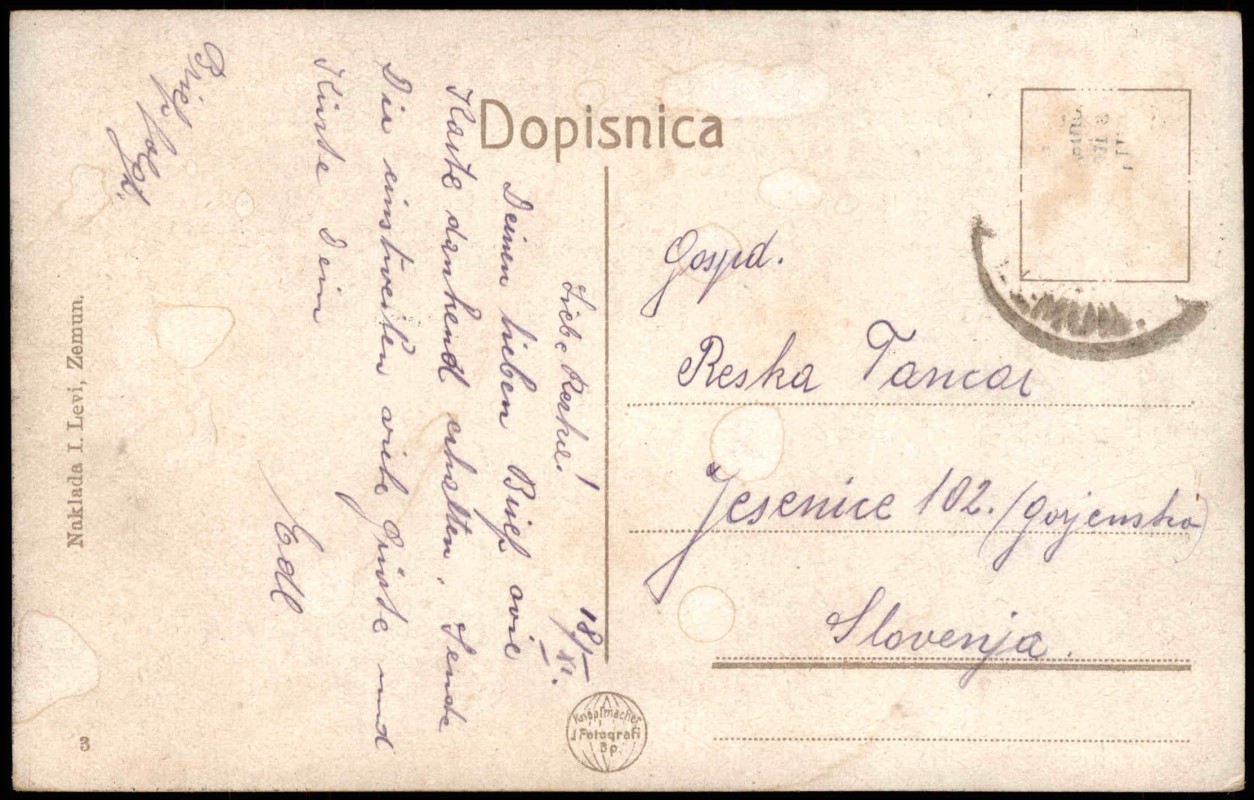 Dopisnica
18/XI.
Liebe Reska!
Deinen lieben Brief wie
Karte dankend erhalten. Sende
Dir einstweilen viele Grüsse und
Küsse Dein
Edl
Brief folgt.
Gospd.
Reska Tancar
Jesenice 102. (Gorjensko)
Slovenja.
Naklada I. Levi, Zemun.
3
Knöpfmacher
J Fotografi
Bp.